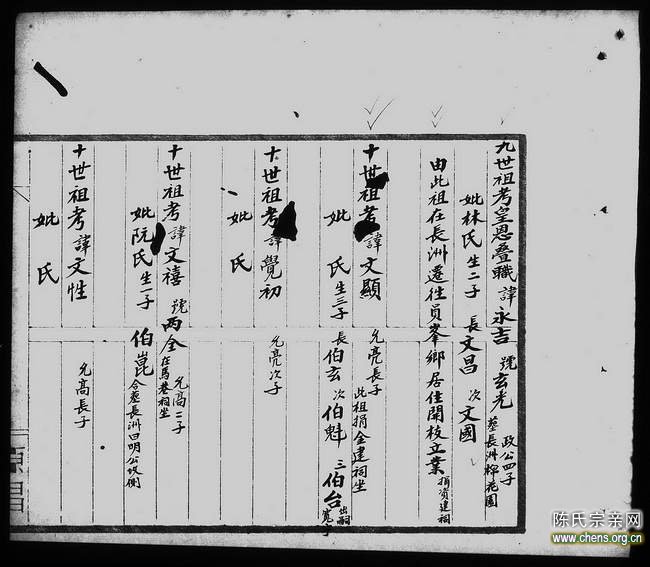 九世祖考皇恩叠職 諱永吉 號玄光 政公四子 葬長洲棉花園
妣林氏生二子 長文昌 次文國
由此祖在長洲遷往員峯鄉居住開枝立業 捐資建祠
十世祖考諱文顯 允亮長子 此祖捐金建祠坐
妣 氏生三子 長伯玄 次伯魁 三伯台 出嗣
十世祖考諱覺初 允亮次子
妣 氏
十世祖考諱文禧 號两全 允高二子 在馬巷祠坐
妣阮氏生一子 伯崑 合葬長洲回明公坟側
十世祖考諱文性 允高長子
妣 氏
陈氏宗亲网
www.chens.org.cn